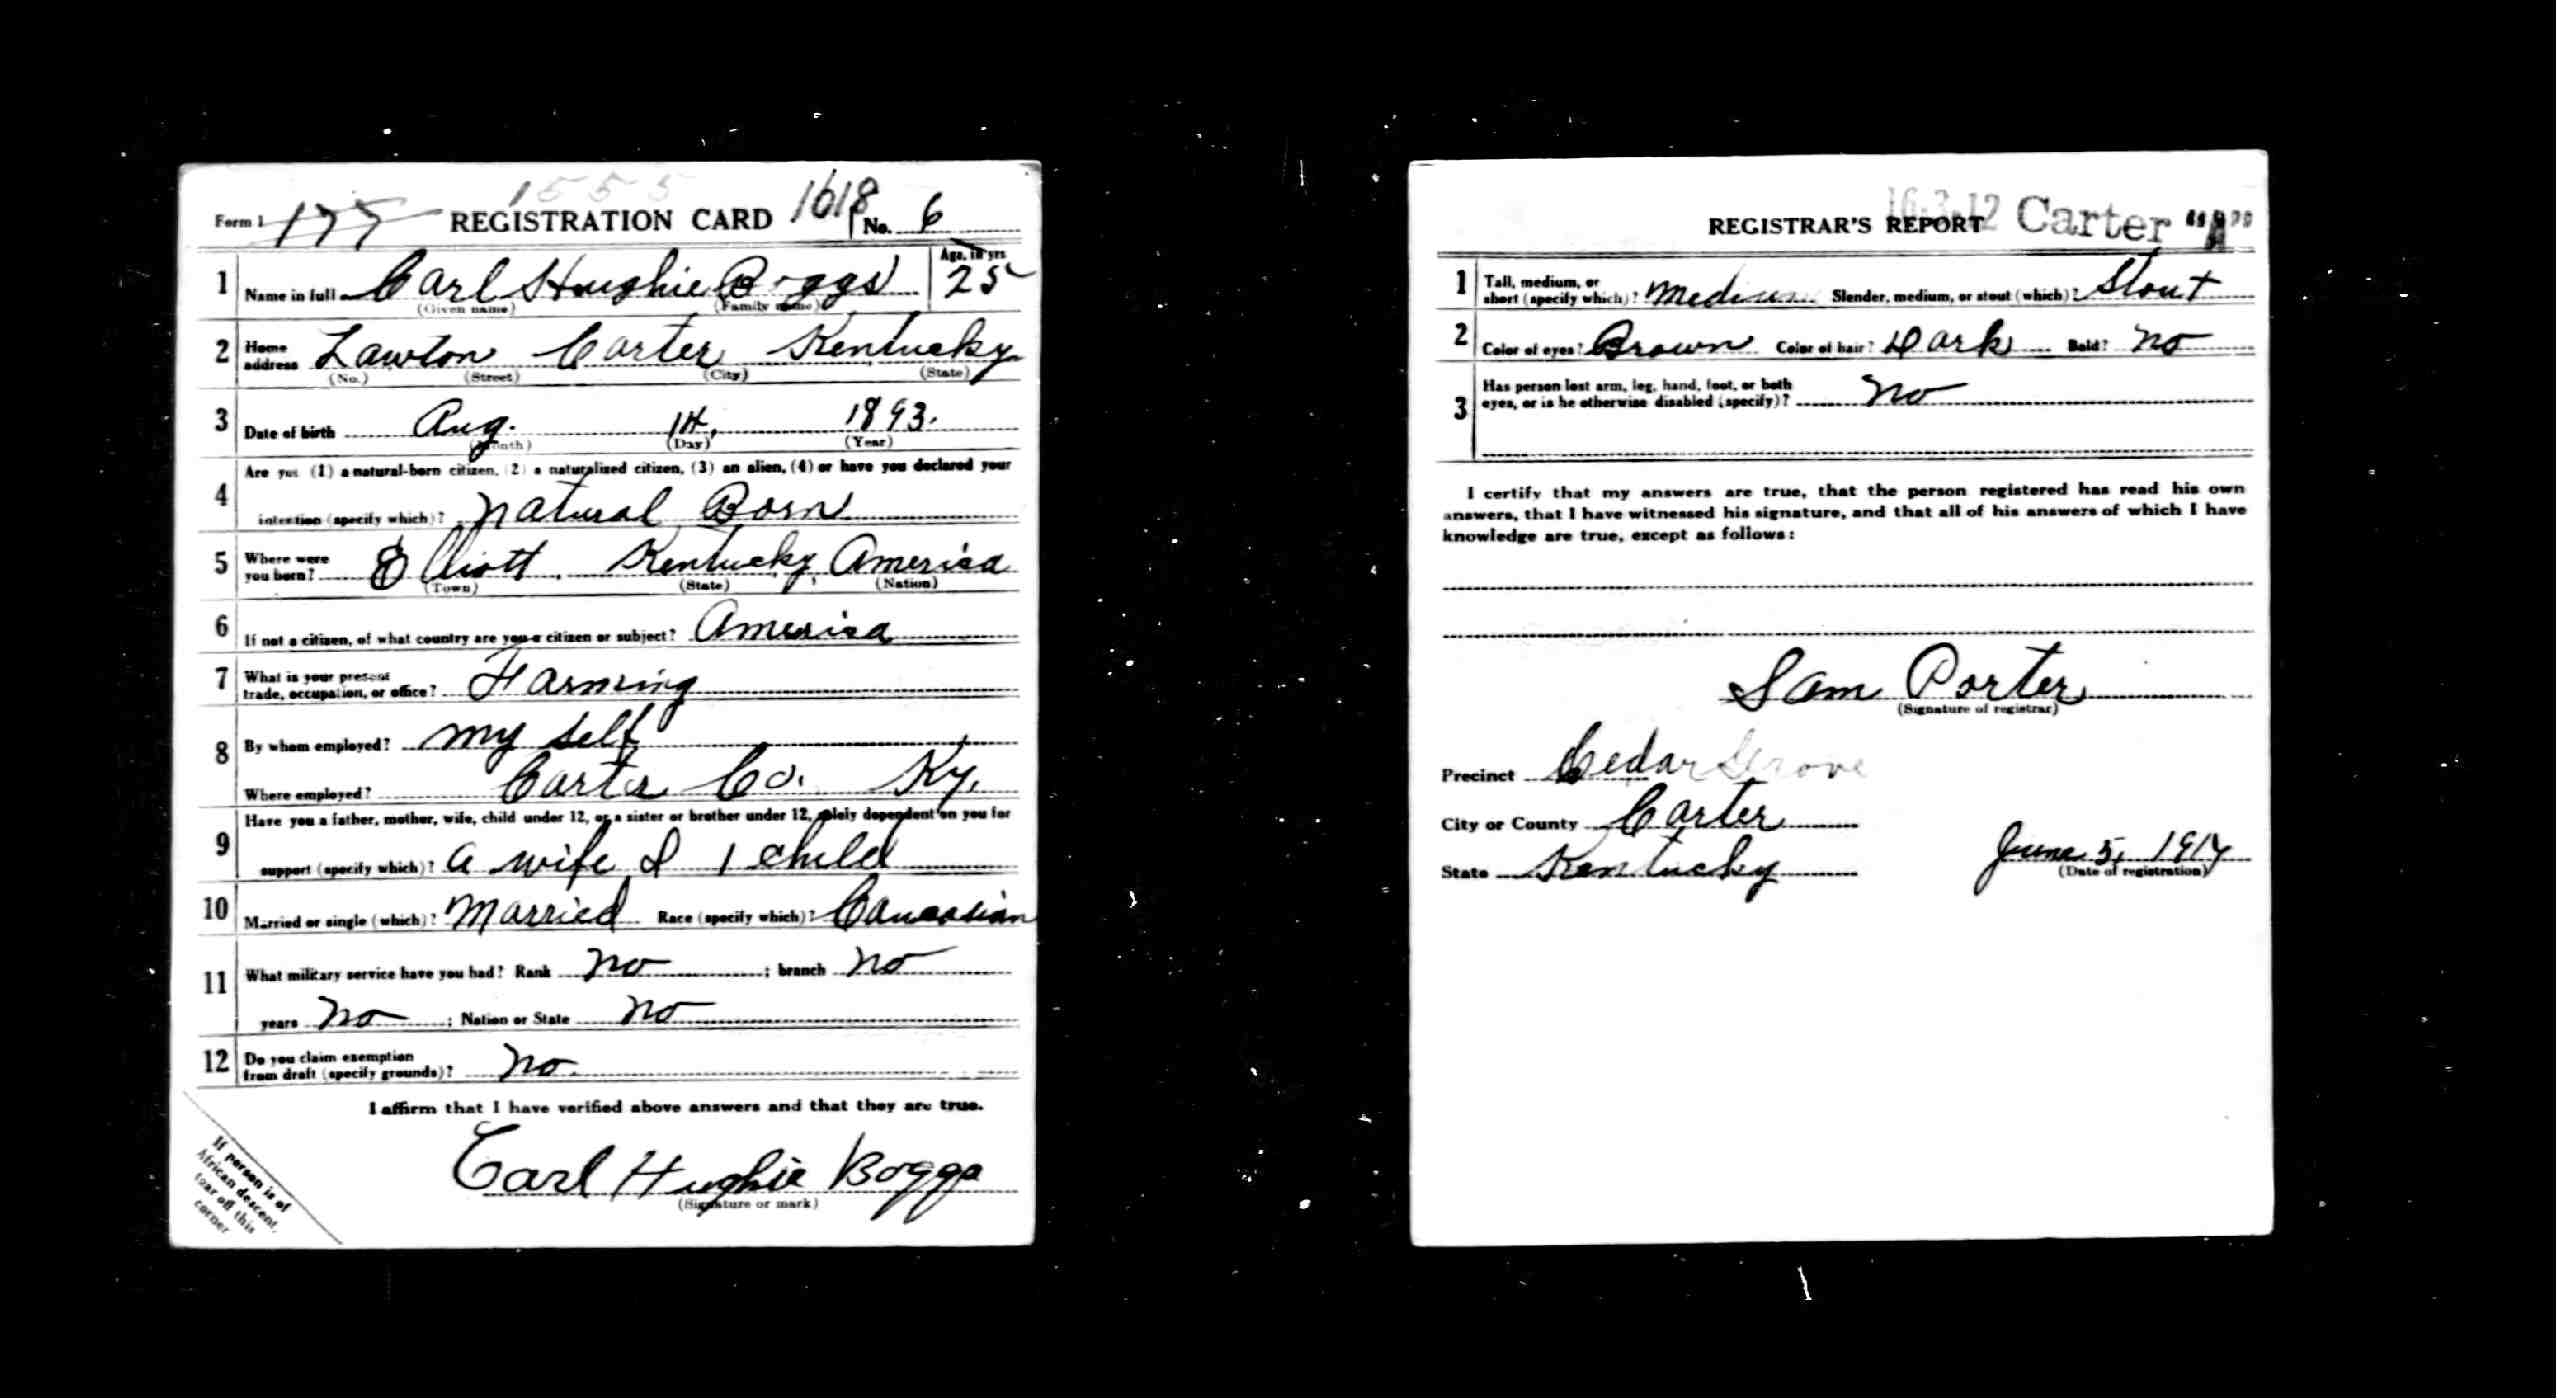 1555
Form 1 177 REGISTRATION CARD 1618 No. 6
1 Name in full Carl Hughie Boggs Age, in yrs 25
(Given name) (Family name)
2 Home address Lawton Carter Kentucky
(No.) (Street) (City) (State)
3 Date of birth Aug. 14, 1893.
(Month) (Day) (Year)
4 Are you (1) a natural-born citizen, (2) a naturalized citizen, (3) an alien, (4) or have you declared your
intention (specify which)? Natural Born
5 Where were you born? Elliott Kentucky, America
(Town) (State) (Nation)
6 If not a citizen, of what country are you a citizen or subject? America
7 What is your present trade, occupation, or office? Farming
8 By whom employed? my self
Where employed? Carter Co. Ky,
9 Have you a father, mother, wife, child under 12, or a sister or brother under 12, solely dependent on you for
support (specify which)? a wife & 1 child
10 Married or single (which)? Married Race (specify which)? Caucasian
11 What military service have you had? Rank no ; branch no
years no ; Nation or State no
12 Do you claim exemption from draft (specify grounds)? no.
I affirm that I have verified above answers and that they are true.
Carl Hughie Boggs
(Signature or mark)
If person is of
African descent,
tear off this
corner
16-3-12 Carter "A"
REGISTRAR'S REPORT
1 Tall, medium, or short (specify which)? Medium Slender, medium, or stout (which)? Stout
2 Color of eyes? Brown Color of hair? Dark Bald? no
3 Has person lost arm, leg, hand, foot, or both
eyes, or is he otherwise disabled (specify)? no
I certify that my answers are true, that the person registered has read his own
answers, that I have witnessed his signature, and that all of his answers of which I have
knowledge are true, except as follows:
Sam Porter
(Signature of registrar)
Precinct Cedar Grove
City or County Carter
State Kentucky June 5, 1917
(Date of registration)